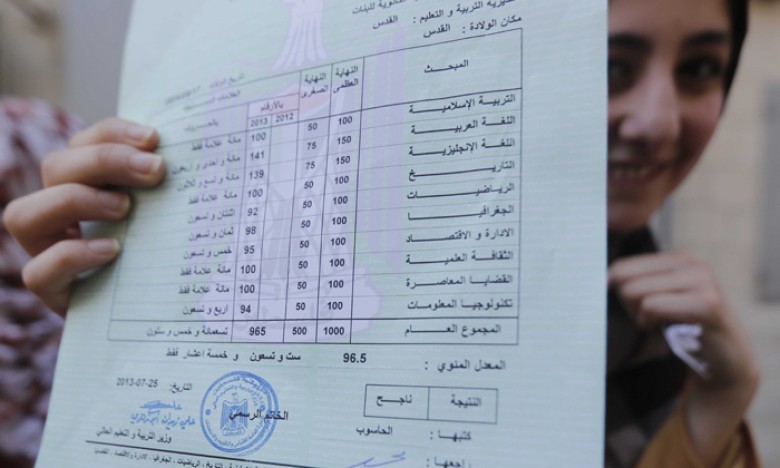 مديرية التربية و التعليم : القدس
مكان الولادة : القدس
المبحث النهاية العظمى النهاية الصغرى بالأرقام
2012 2013
التربية الإسلامية 100 50 100 مائة علامة فقط
اللغة العربية 150 75 141 مائة و احدى و اربعون
اللغة الإنجليزية 150 75 139 مائة و تسع و ثلاثون
التاريخ 100 50 100 مائة علامة فقط
الرياضيات 100 50 92 اثنتان و تسعون
الجغرافيا 100 50 98 ثمان و تسعون
الادارة و الاقتصاد 100 50 95 خمس و تسعون
الثقافة العلمية 100 50 100 مائة علامة فقط
القضايا المعاصرة 100 50 100 مائة علامة فقط
تكنولوجيا المعلومات 100 50 94 اربع و تسعون
المجموع العام 1000 500 965 تسعمائة و خمس و ستون
المعدل المئوي : 96.5 ست و تسعون و خمسة اعشار فقط
النتيجة ناجح
التاريخ: 25-07-2013
الخاتم الرسمي
كتبها : الحاسوب
وزير التربية و التعليم العالي
راجعها :